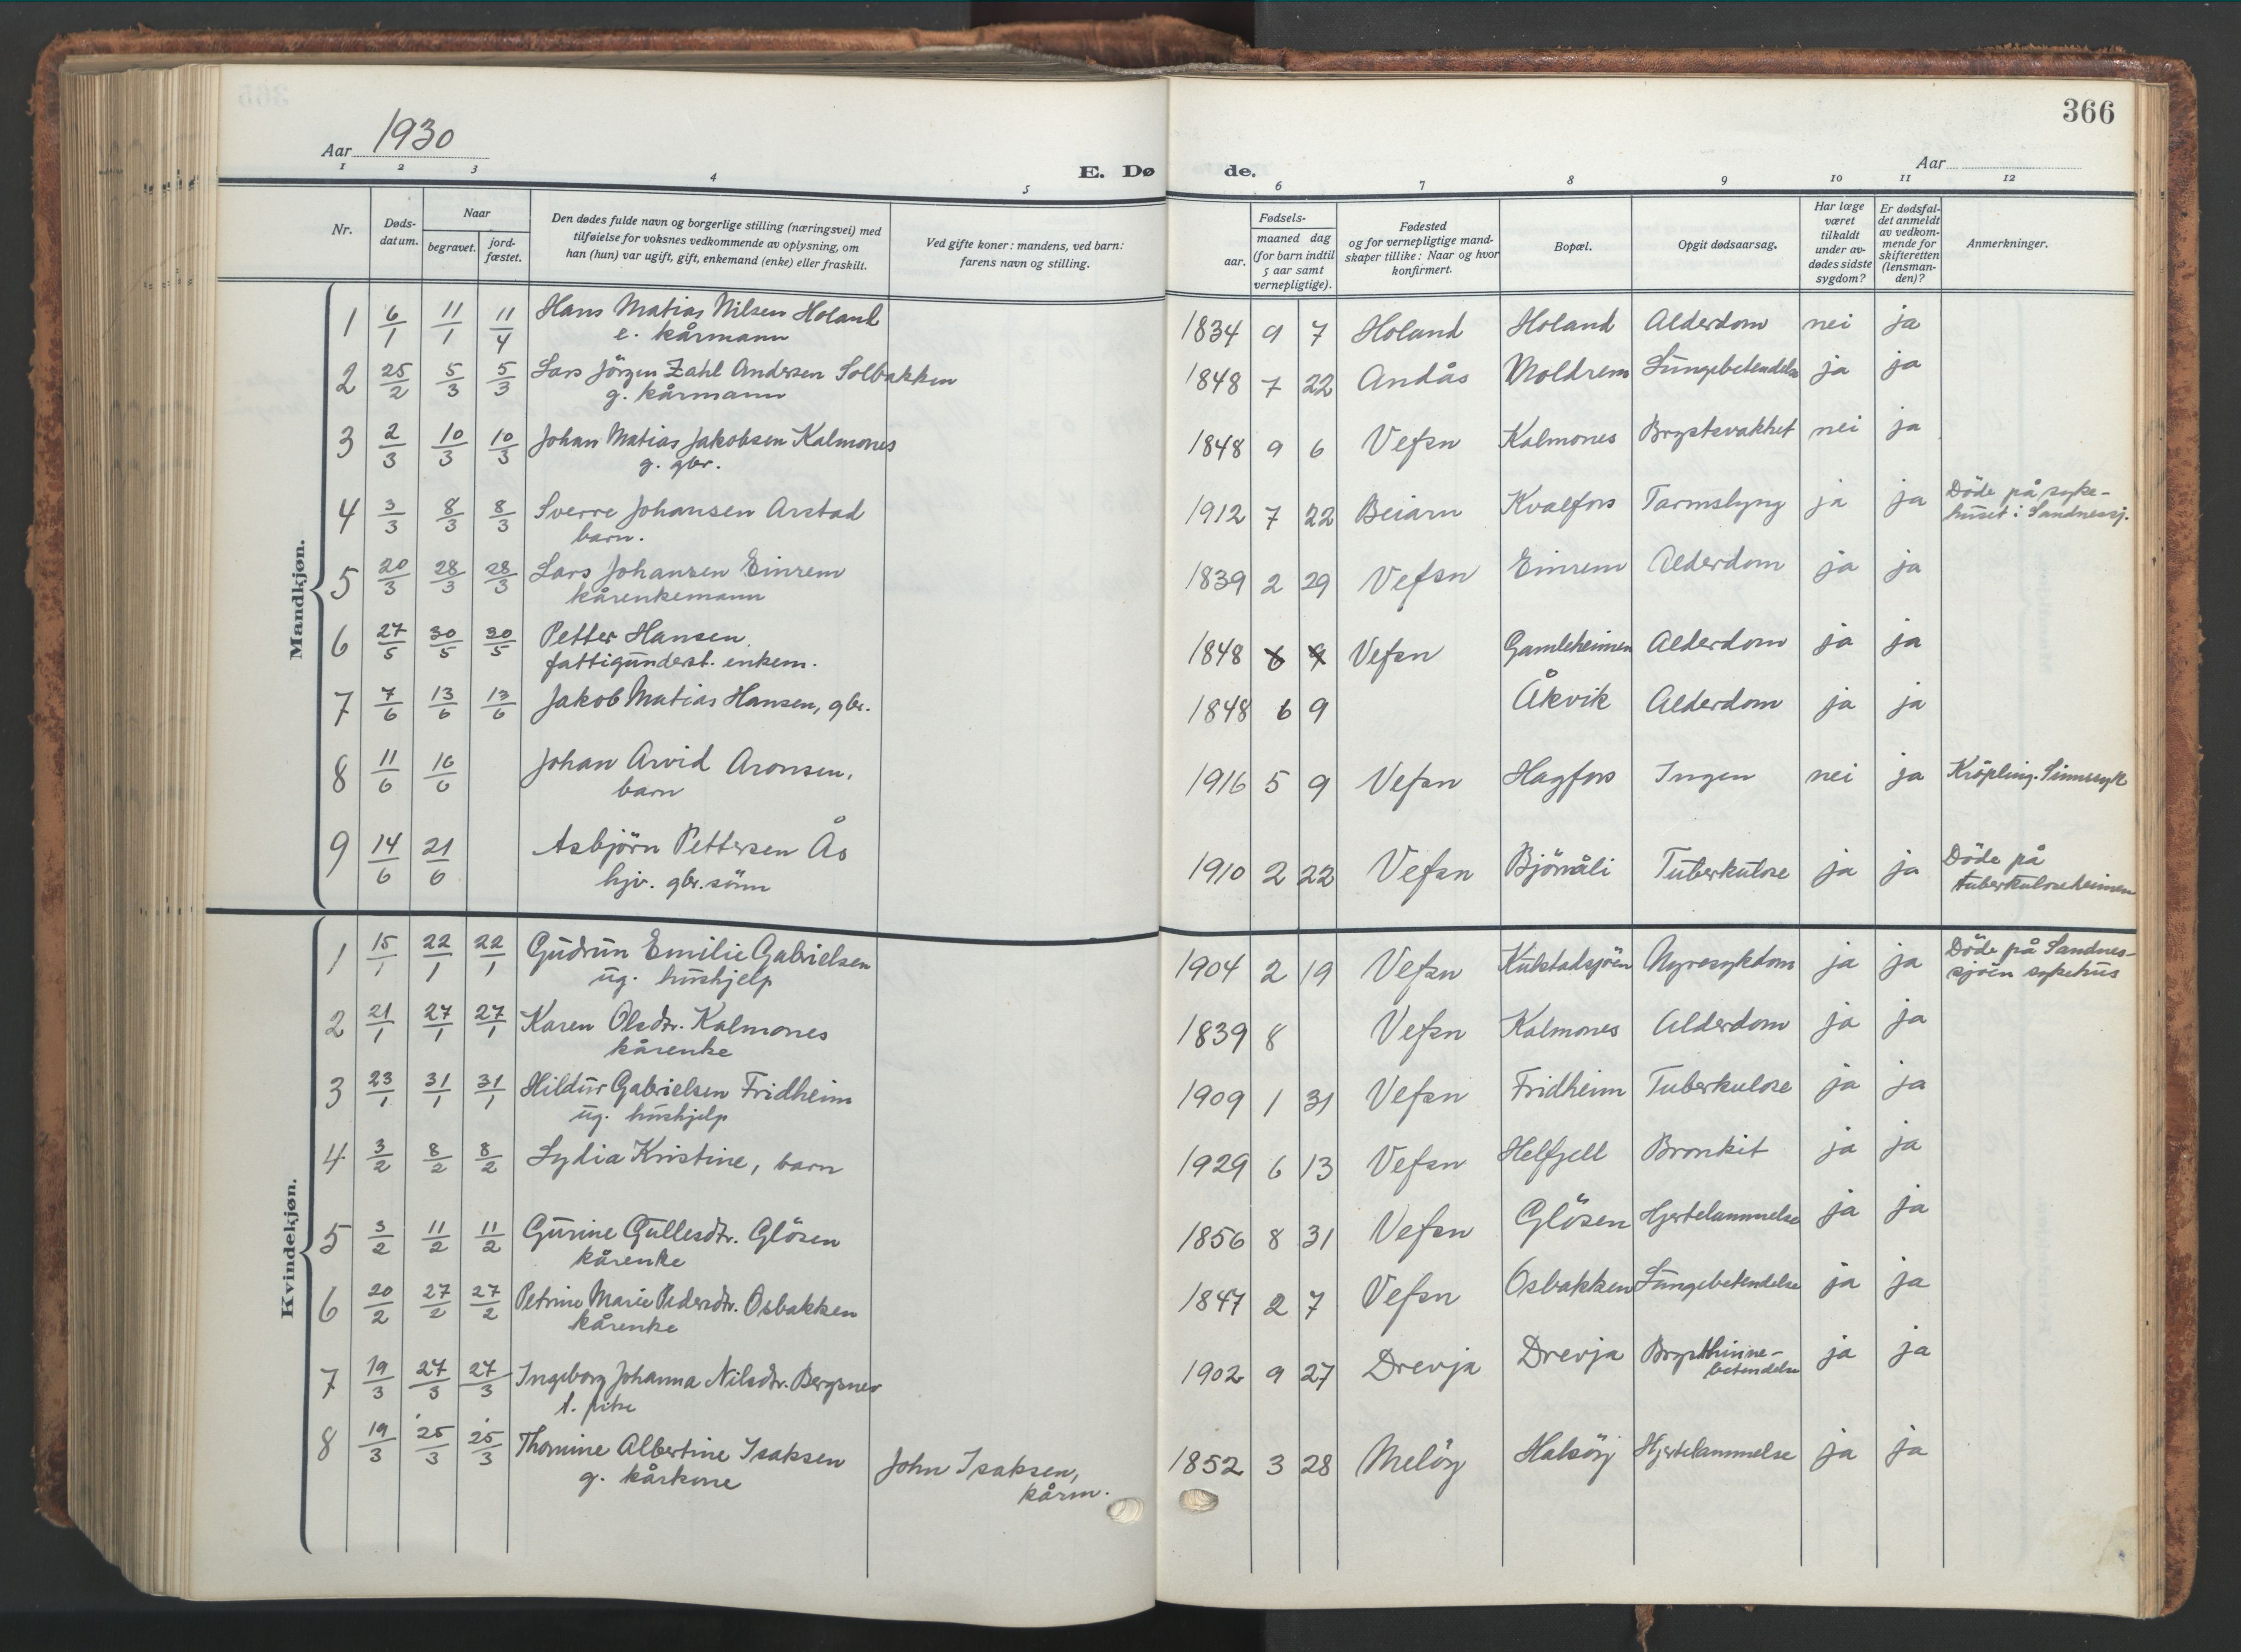 366
Aar 1930
E. Døde.
Aar
1 2 3 4 5 6 7 8 9 10 11 12
Nr.
Døds-
datum.
Naar
begravet.
jord-
fæstet.
Den dødes fulde navn og borgerlige stilling (næringsvei) med
tilføielse for voksnes vedkommende av oplysning, om
han (hun) var ugift, gift, enkemand (enke) eller fraskilt.
Ved gifte koner: mandens, ved barn:
farens navn og stilling.
Fødsels-
aar.
maaned dag
(for barn indtil
5 aar samt
vernepligtige).
Fødested
og for vernepligtige mand-
skaper tillike: Naar og hvor
konfirmert.
Bopæl.
Opgit dødsaarsag.
Har læge
været
tilkaldt
under av-
dødes sidste
sygdom?
Er dødsfal-
det anmeldt
av vedkom-
mende for
skifteretten
(lensman-
den)?
Anmerkninger.
Mandkjøn.
1 6/1 11/1 11/4 Hans Matias Nilsen Holand 1834 9 7 Holand Holand Alderdom nei ja
e. kårmann
2 25/2 5/3 5/3 Lars Jörgen Zahl Andersen Solbakken 1848 7 22 Andås Moldrem Lungebetendelse ja ja
g. kårmann
3 2/3 10/3 10/3 Johan Matias Jakobsen Kalmones 1848 9 6 Vefsn Kalmones Brystsvakhet nei ja
g. gbr.
4 3/3 8/3 8/3 Sverre Johansen Arstad 1912 7 22 Beiarn Kvalfors Tarmslyng ja ja Döde på syke-
barn. huset i Sandnessj.
5 20/3 28/3 28/3 Lars Johansen Einrem 1839 2 29 Vefsn Einrem Alderdom ja ja
kårenkemann
6 27/5 30/5 30/5 Petter Hansen 1848 6 9 Vefsn Gamleheimen Alderdom ja ja
fattigunderst. enkem.
7 7/6 13/6 13/6 Jakob Matias Hansen, gbr. 1848 6 9 Åkvik Alderdom ja ja
8 11/6 16/6 Johan Arvid Aronsen, 1916 5 9 Vefsn Hagfors Ingen nei ja Kröpling. Sinnssyk
barn
9 14/6 21/6 Asbjörn Pettersen Ås 1910 2 22 Vefsn Björnåli Tuberkulose ja ja Döde på
hjv. gbr.sönn tuberkuloseheimen
Kvindekjøn.
1 15/1 22/1 22/1 Gudrun Emilie Gabrielsen 1904 2 19 Vefsn Kulstadsjöen Nyresykdom ja ja Döde på Sandnes-
ug. hushjelp sjöen sykehus
2 21/1 27/1 27/1 Karen Olsdtr. Kalmones 1839 8 Vefsn Kalmones Alderdom ja ja
kårenke
3 23/1 31/1 31/1 Hildur Gabrielsen Fridheim 1909 1 31 Vefsn Fridheim Tuberkulose ja ja
ug. hushjelp
4 3/2 8/2 8/2 Lydia Kristine, barn 1929 6 13 Vefsn Helfjell Bronkit ja ja
5 3/2 11/2 11/2 Gurine Gullesdtr. Glösen 1856 8 31 Vefsn Glösen Hjertelammelse ja ja
kårenke
6 20/2 27/2 27/2 Petrine Marie Pedersdtr. Osbakken 1847 2 7 Vefsn Osbakken Lungebetendelse ja ja
kårenke
7 19/3 27/3 27/3 Ingeborg Johanna Nilsdtr. Bergsnev 1902 9 27 Drevja Drevja Brysthinne- ja ja
t. pike betendelse
8 19/3 25/3 25/3 Thomine Albertine Isaksen John Isaksen, 1852 3 28 Melöy Halsöy Hjertelammelse ja ja
g. kårkone kårm.